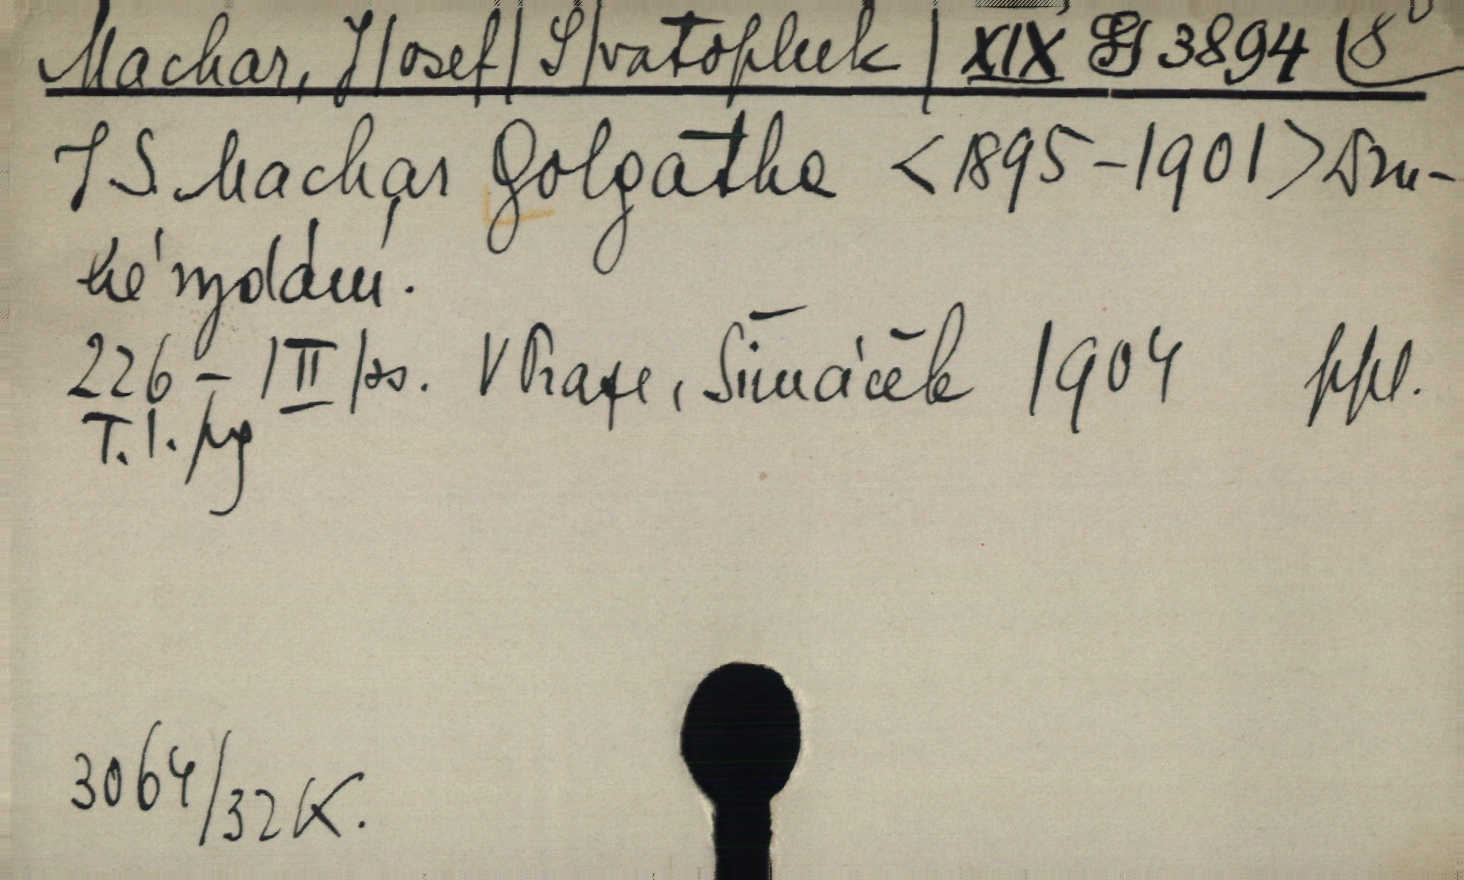 Machar, J/osef/ S/vatopluk/ XIX 3894 8°
J S Machar Golgatha <1895-1901> Dru-
hé vydání.
226 - /II/ s. V Praze, Šimáček 1904 ppl.
T. l.
3064/32 K.